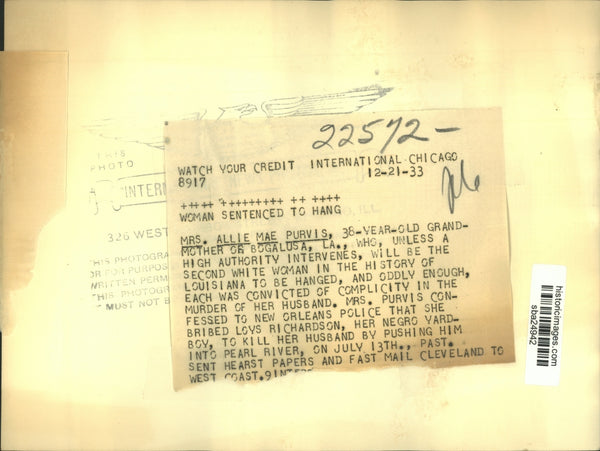 22572-
WATCH YOUR CREDIT INTERNATIONAL CHICAGO
8917 12-21-33
WOMAN SENTENCED TO HANG
MRS. ALLIE MAE PURVIS, 38-YEAR-OLD GRAND-
MOTHER OF BOGALUSA, LA., WHO, UNLESS A
HIGH AUTHORITY INTERVENES, WILL BE THE
SECOND WHITE WOMAN IN THE HISTORY OF
LOUISIANA TO BE HANGED, AND ODDLY ENOUGH,
EACH WAS CONVICTED OF COMPLICITY IN THE
MURDER OF HER HUSBAND. MRS. PURVIS CON-
FESSED TO NEW ORLEANS POLICE THAT SHE
BRIBED LOYS RICHARDSON, HER NEGRO YARD-
BOY, TO KILL HER HUSBAND BY PUSHING HIM
INTO PEARL RIVER, ON JULY 13TH., PAST.
SENT HEARST PAPERS AND FAST MAIL CLEVELAND TO
WEST COAST.
THIS
PHOTO
INTERN
326 WEST
THIS PHOTOGRA
OR FOR PURPOS
WRITTEN PERM
THIS PHOTOGR
MUST NOT B
ILL
historicimages.com
sba24942